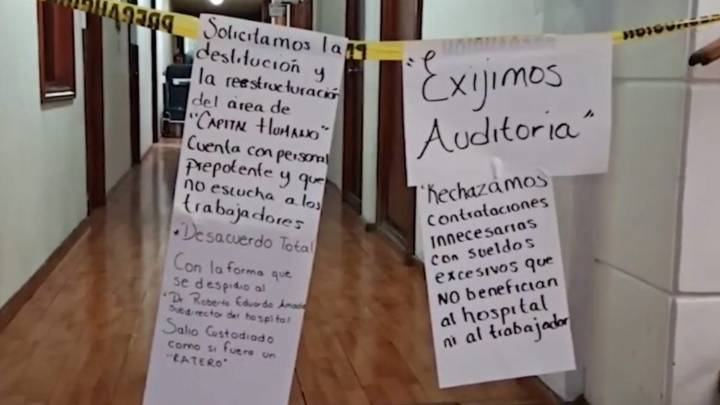 PRECAUCIÓN
Solicitamos la
destitución y
la reestructuración
del área de
"CAPITAL HUMANO"
Cuenta con personal
Prepotente y que
no escucha a los
trabajadores
*Desacuerdo Total
Con la forma que
se despidio al
"Dr Roberto Eduardo
Subdirector del hospital
Salio Custodiado
como si fuera un
"RATERO"
"Exijimos
Auditoria"
"Rechazamos
contrataciones
innecesarias
con sueldos
excesivos que
NO benefician
al hospital
ni al trabajador